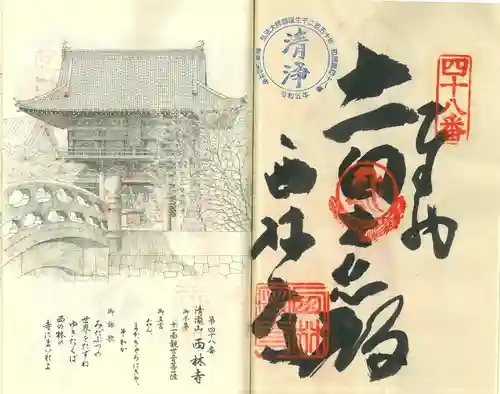 四十八番
弘法大師御誕生千二百五十年
清浄
西林寺
第四十八番
清瀧山 西林寺
御本尊
十一面観世音菩薩
御真言
おん
まかきゃろにきゃ
そわか
御詠歌
みだぶつの
世界をたずね
ゆきたくば
西の林の
寺にまいれよ